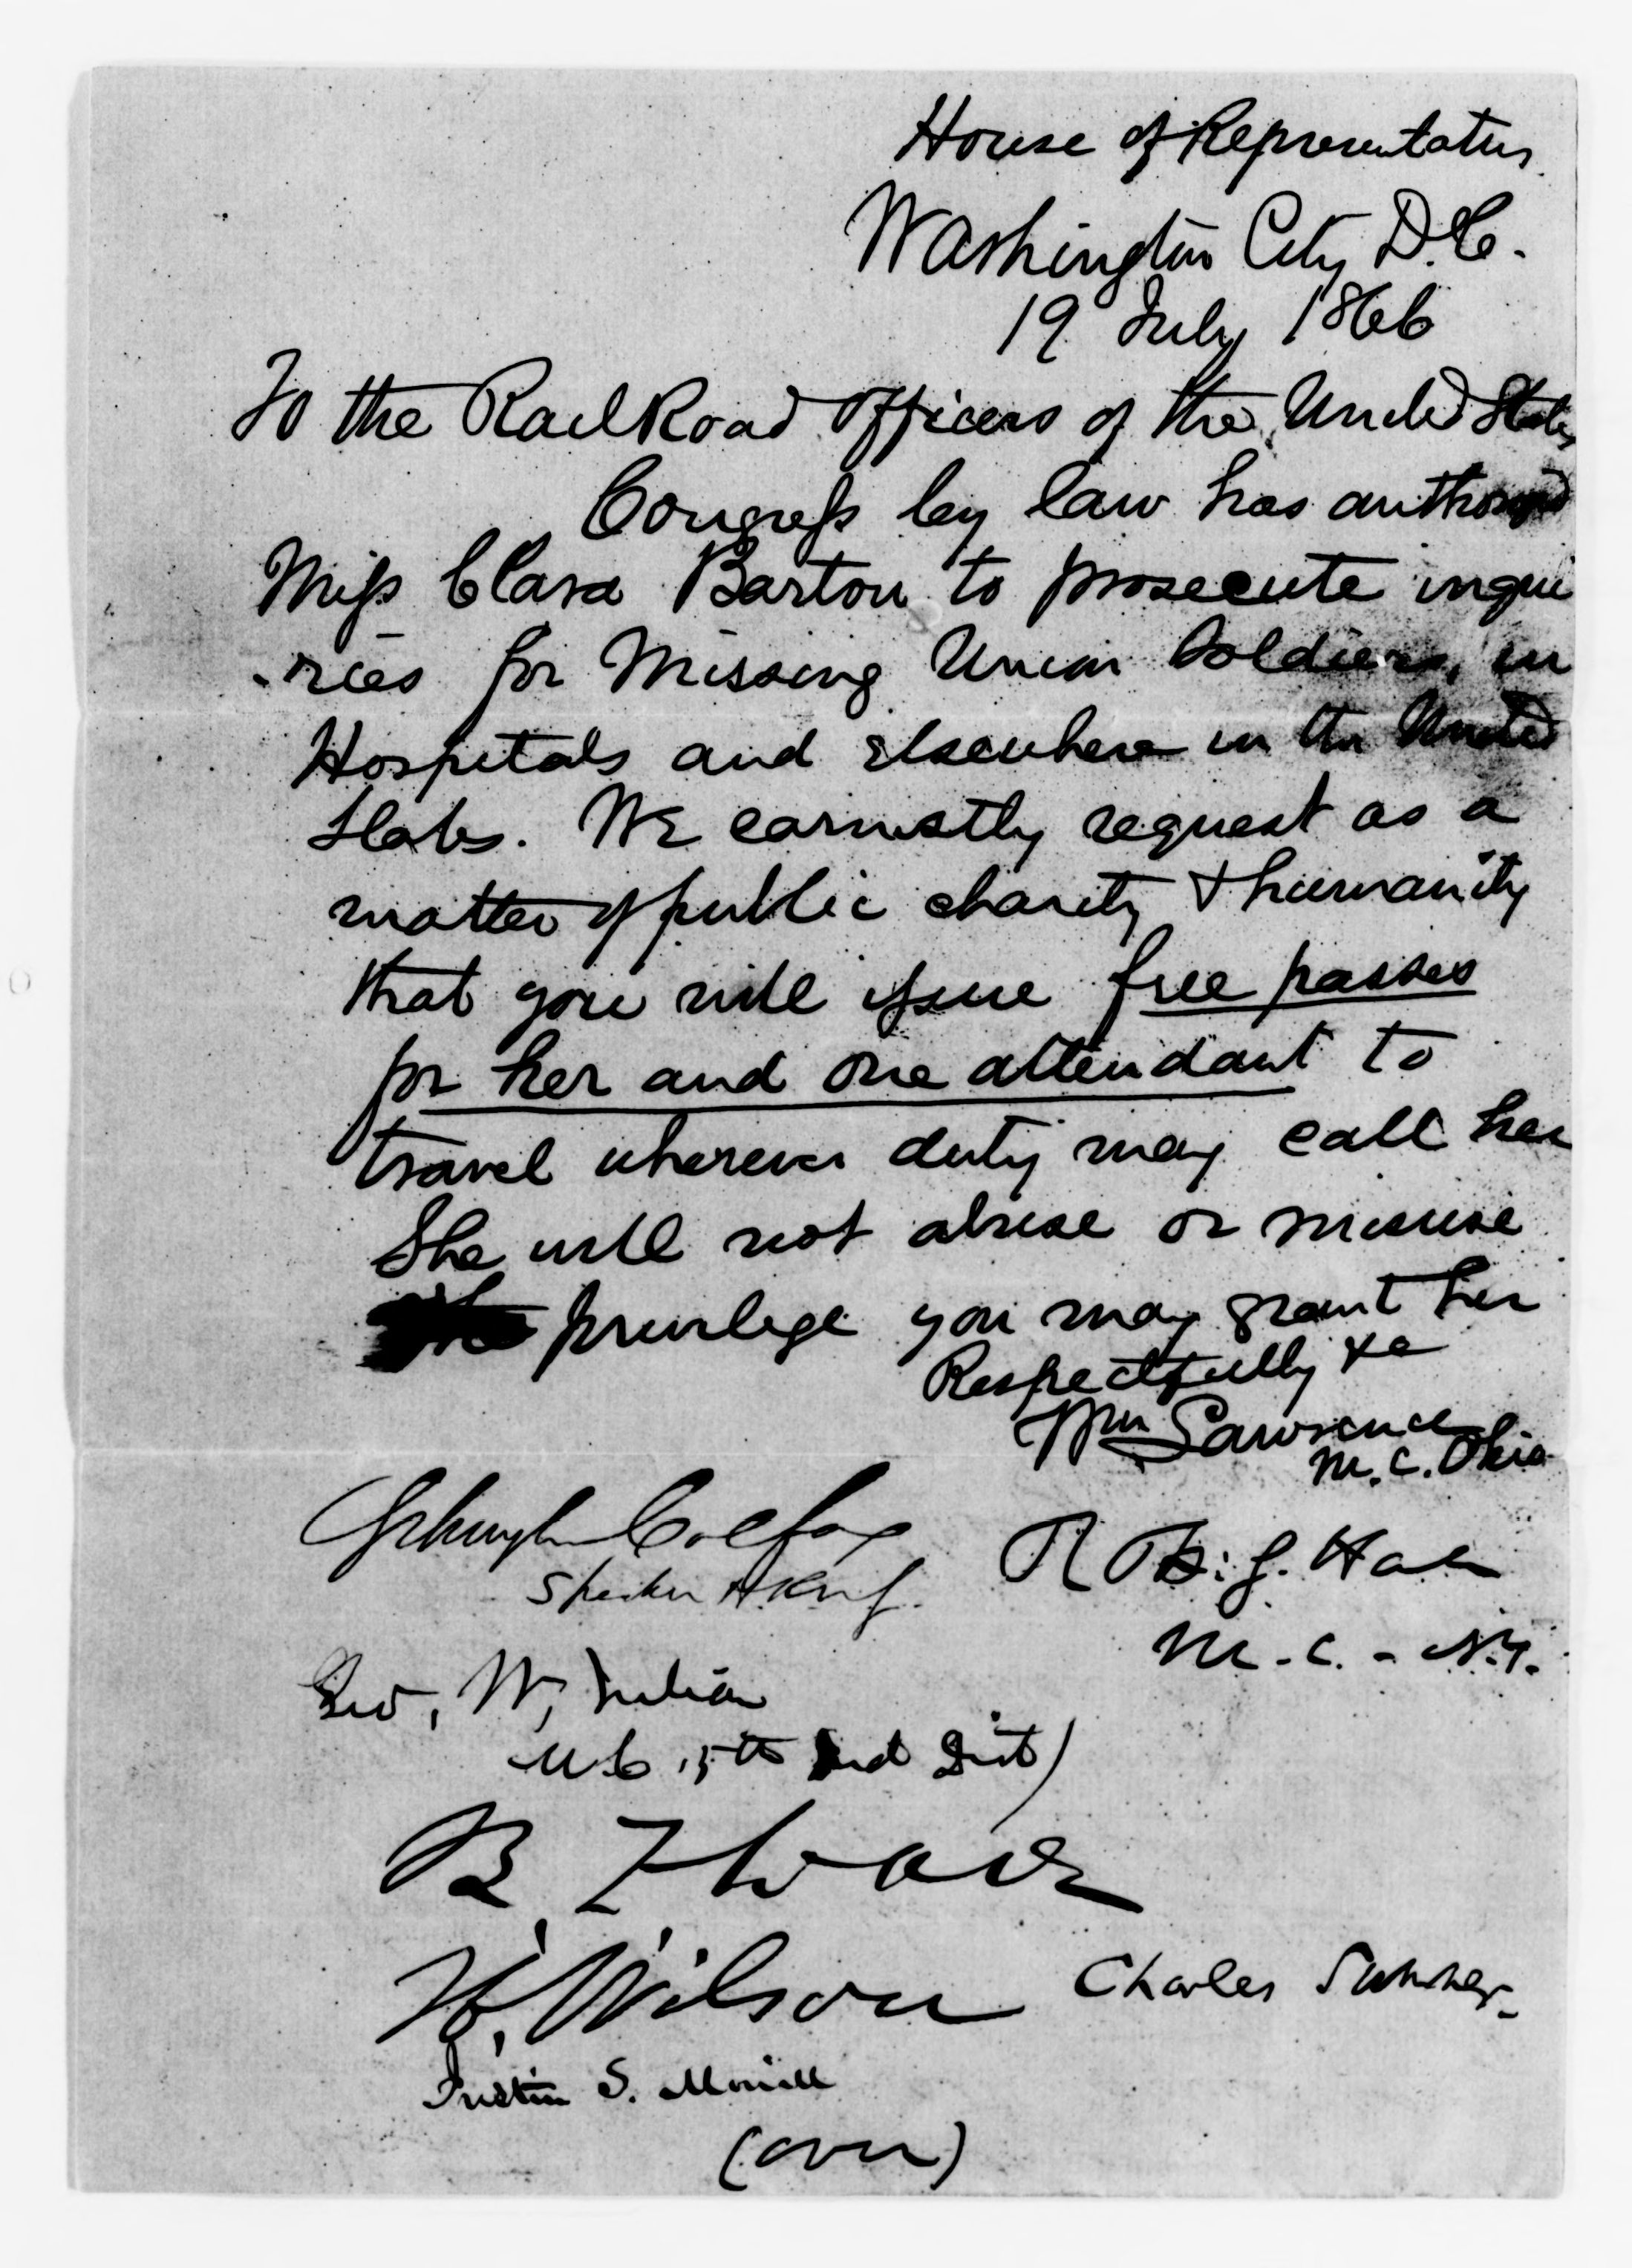 House of Representatives
Washington City D.C.
19 July 1866
To the RailRoad officers of the United States
Congress by law has authorized
Miss Clara Barton to prosecute inqui
-ries for Missing Union Soldiers, in
Hospitals and elsewhere in the United
States. We earnestly request as a
matter of public charity & humanity
that you will issue free passes
for her and one attendant to
travel wherever duty may call her
She will not abuse or misuse
the privilege you may grant her
Respectfully &c
Wm Lawrence
M.C. Ohio
Schuyler Colfax
Speaker H Rep.
R. S. Hale
M.C. - N.Y.
Geo, W, Julian
M C 5th Ind Dist)
B F Wade
H. Wilson
Charles Sumner
Justin S. Morrill
(over)